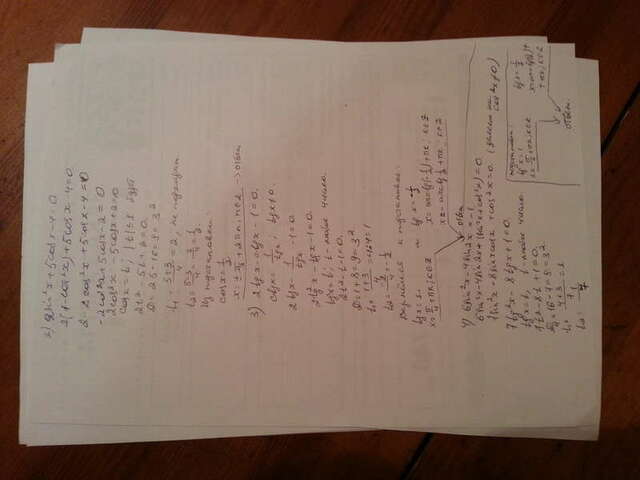 2) 2sin²x + 5cosx - 4 = 0.
2(1-cos²x) + 5cosx - 4 = 0.
2 - 2cos²x + 5cosx - 4 = 0
-2cos²x + 5cosx - 2 = 0
2cos²x - 5cosx + 2 = 0
cosx = t; |t| ≤ 1
2t² - 5t + 2 = 0.
D = 25 - 16 = 9 = 3²
t₁ = (5+3)/4 = 2, не подходит
t₂ = (5-3)/4 = 2/4 = 1/2.
Из подстановки:
cosx = 1/2
x = ± π/3 + 2πn, n∈Z → ответ
3) 2tgx - ctgx - 1 = 0.
ctgx = 1/tgx; tgx ≠ 0.
2tgx - 1/tgx - 1 = 0.
2tg²x - tgx - 1 = 0.
tgx = t; t - любое число.
2t² - t - 1 = 0.
D = 1 + 8 = 9 = 3²
t₁ = (1+3)/4 = 4/4 = 1
t₂ = -2/4 = -1/2
Вернёмся к подстановке:
tgx = 1. и tgx = -1/2
x = π/4 + πк; к∈Z x = arctg(-1/2) + πк; к∈Z
x = -arctg 1/2 + πк; к∈Z
ответ
4) 6sin²x - 4sin2x = -1
6sin²x - 4sin2x + (sin²x + cos²x) = 0.
7sin²x - 8sinxcosx + cos²x = 0. (делим на cos²x ≠ 0)
7tg²x - 8tgx + 1 = 0.
tgx = t, t - любое число.
7t² - 8t + 1 = 0.
D/4 = 16 - 7 = 9 = 3²
t₁ = (4+3)/7 = 1
t₂ = 1/7
подстановка:
tgx = 1
x = π/4 + πк; к∈Z
ответ.